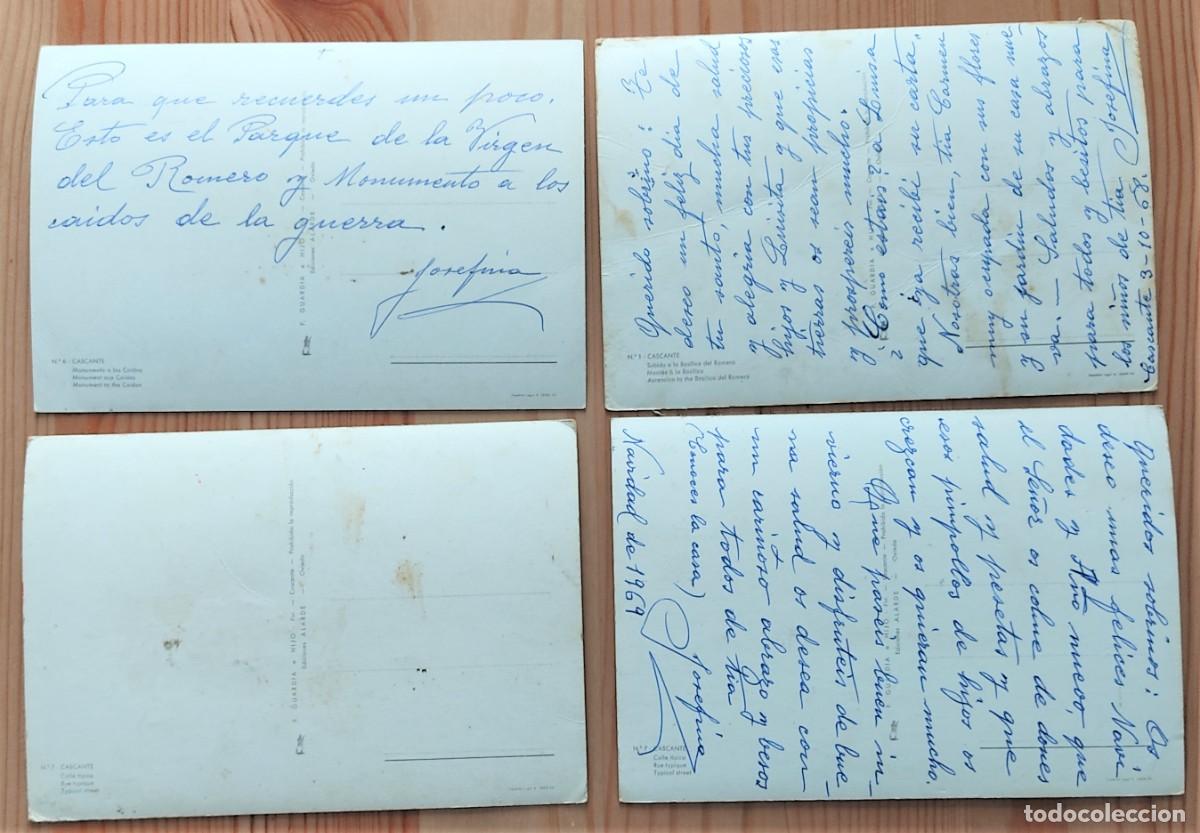 Para que recuerdes un poco.
Esto es el Parque de la Virgen
del Romero y Monumento a los
caidos de la guerra.
Josefina
F. GUARDIA e HIJO
Ediciones ALARDE - Oviedo
N.º 6 - CASCANTE
Monumento a los Caídos
Monument aux Caídos
Monument to the Caídos
Querido sobrino: Te
deseo un feliz día de
tu santo, mucha salud
y alegria con tus preciosos
hijos y Luisita y que esas
tierras os sean propicias
y prospereis mucho.
¿Como estais? a Luisa
que ya recibí su carta.
Nosotras bien, tia Carmen
muy ocupada con sus flores
y su jardin de su casa nue-
va. — Saludos y abrazos
para todos y besitos para
los niños de tia Josefina
Cascante 3-10-68.
F. GUARDIA e HIJO
N.º 1 - CASCANTE
Subida a la Basílica del Romero
Montée à la Basílica
Ascension to the Basílica del Romero
F. GUARDIA e HIJO - Fot. - Cascante - Prohibida la reproducción
Ediciones ALARDE - Oviedo
N.º 7 - CASCANTE
Calle típica
Rue typique
Typical street
Queridos sobrinos: Os
deseo unas felices Navi
dades y Año nuevo, que
el Señor os colme de dones
salud y pesetas y que
esos pimpollos de hijos os
crezcan y os quieran mucho.
Que paseis buen in-
vierno y disfruteis de bue
na salud os desea con
un cariñoso abrazo y besos
para todos de tia
(Conoces la casa) Josefina
Navidad de 1969
F. GUARDIA e HIJO - Fot. - Cascante - Prohibida la reproducción
Ediciones ALARDE - Oviedo
N.º 7 - CASCANTE
Calle típica
Rue typique
Typical street
todocoleccion